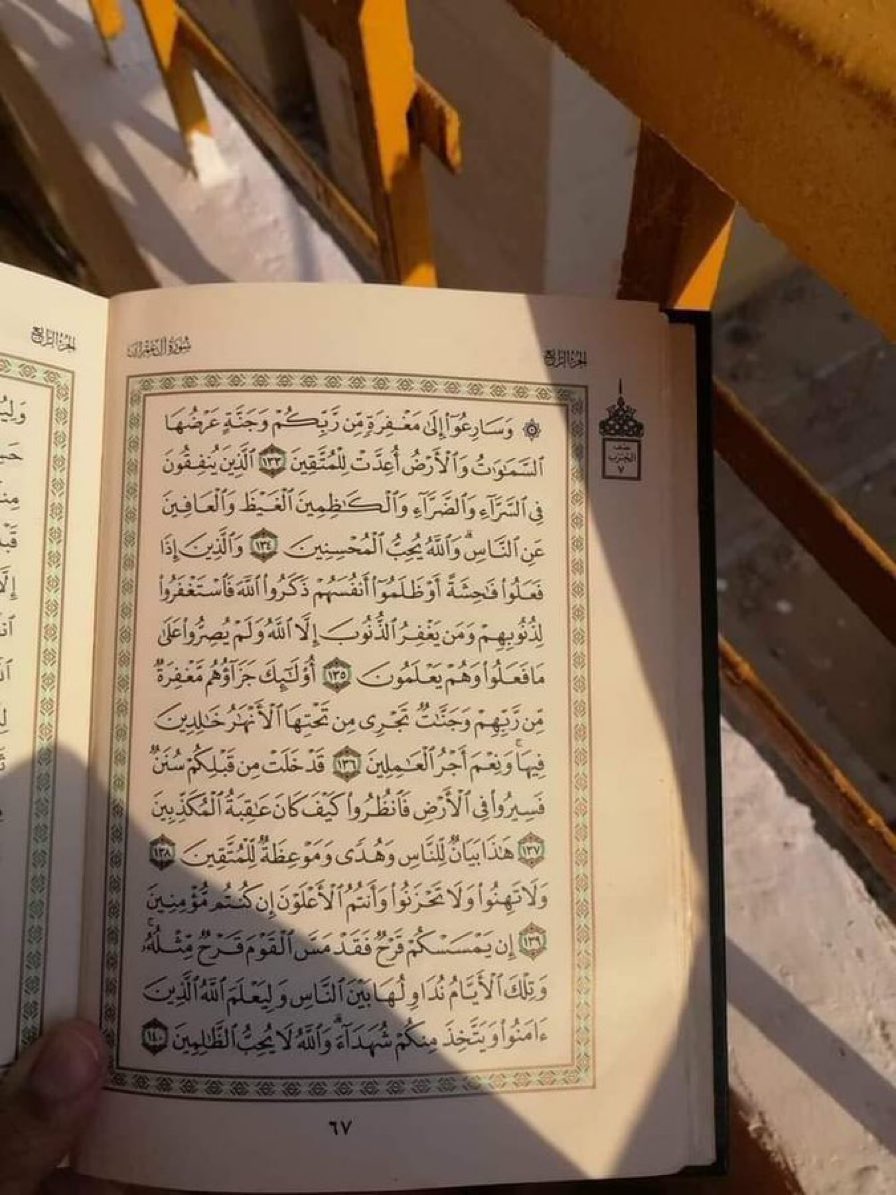 سُورَةُ آلِ عِمۡرَانَ
الجُزۡءُ الرَّابِعُ
۞ وَسَارِعُوٓاْ إِلَىٰ مَغۡفِرَةٖ مِّن رَّبِّكُمۡ وَجَنَّةٍ عَرۡضُهَا
ٱلسَّمَٰوَٰتُ وَٱلۡأَرۡضُ أُعِدَّتۡ لِلۡمُتَّقِينَ ١٣٣ ٱلَّذِينَ يُنفِقُونَ
فِي ٱلسَّرَّآءِ وَٱلضَّرَّآءِ وَٱلۡكَٰظِمِينَ ٱلۡغَيۡظَ وَٱلۡعَافِينَ
عَنِ ٱلنَّاسِۗ وَٱللَّهُ يُحِبُّ ٱلۡمُحۡسِنِينَ ١٣٤ وَٱلَّذِينَ إِذَا
فَعَلُواْ فَٰحِشَةً أَوۡ ظَلَمُوٓاْ أَنفُسَهُمۡ ذَكَرُواْ ٱللَّهَ فَٱسۡتَغۡفَرُواْ
لِذُنُوبِهِمۡ وَمَن يَغۡفِرُ ٱلذُّنُوبَ إِلَّا ٱللَّهُ وَلَمۡ يُصِرُّواْ عَلَىٰ
مَا فَعَلُواْ وَهُمۡ يَعۡلَمُونَ ١٣٥ أُوْلَٰٓئِكَ جَزَآؤُهُم مَّغۡفِرَةٞ
مِّن رَّبِّهِمۡ وَجَنَّٰتٞ تَجۡرِي مِن تَحۡتِهَا ٱلۡأَنۡهَٰرُ خَٰلِدِينَ
فِيهَاۚ وَنِعۡمَ أَجۡرُ ٱلۡعَٰمِلِينَ ١٣٦ قَدۡ خَلَتۡ مِن قَبۡلِكُمۡ سُنَنٞ
فَسِيرُواْ فِي ٱلۡأَرۡضِ فَٱنظُرُواْ كَيۡفَ كَانَ عَٰقِبَةُ ٱلۡمُكَذِّبِينَ
١٣٧ هَٰذَا بَيَانٞ لِّلنَّاسِ وَهُدٗى وَمَوۡعِظَةٞ لِّلۡمُتَّقِينَ ١٣٨
وَلَا تَهِنُواْ وَلَا تَحۡزَنُواْ وَأَنتُمُ ٱلۡأَعۡلَوۡنَ إِن كُنتُم مُّؤۡمِنِينَ
١٣٩ إِن يَمۡسَسۡكُمۡ قَرۡحٞ فَقَدۡ مَسَّ ٱلۡقَوۡمَ قَرۡحٞ مِّثۡلُهُۥۚ
وَتِلۡكَ ٱلۡأَيَّامُ نُدَاوِلُهَا بَيۡنَ ٱلنَّاسِ وَلِيَعۡلَمَ ٱللَّهُ ٱلَّذِينَ
ءَامَنُواْ وَيَتَّخِذَ مِنكُمۡ شُهَدَآءَۗ وَٱللَّهُ لَا يُحِبُّ ٱلظَّٰلِمِينَ ١٤٠
نصف
الحزب
٧
٦٧
الجُزۡءُ الرَّابِعُ